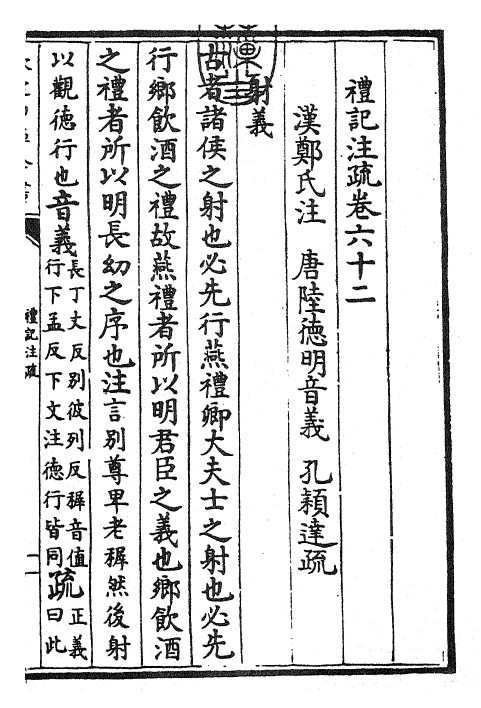 禮記注疏卷六十二
漢鄭氏注 唐陸德明音義 孔穎達疏
射義
古者諸侯之射也必先行燕禮卿大夫士之射也必先
行鄉飲酒之禮故燕禮者所以明君臣之義也鄉飲酒
之禮者所以明長幼之序也注言别尊卑老穉然後射
以觀德行也音義長丁丈反别彼列反穉音值行下孟反下文注德行皆同疏正義曰此
禮記注疏
一